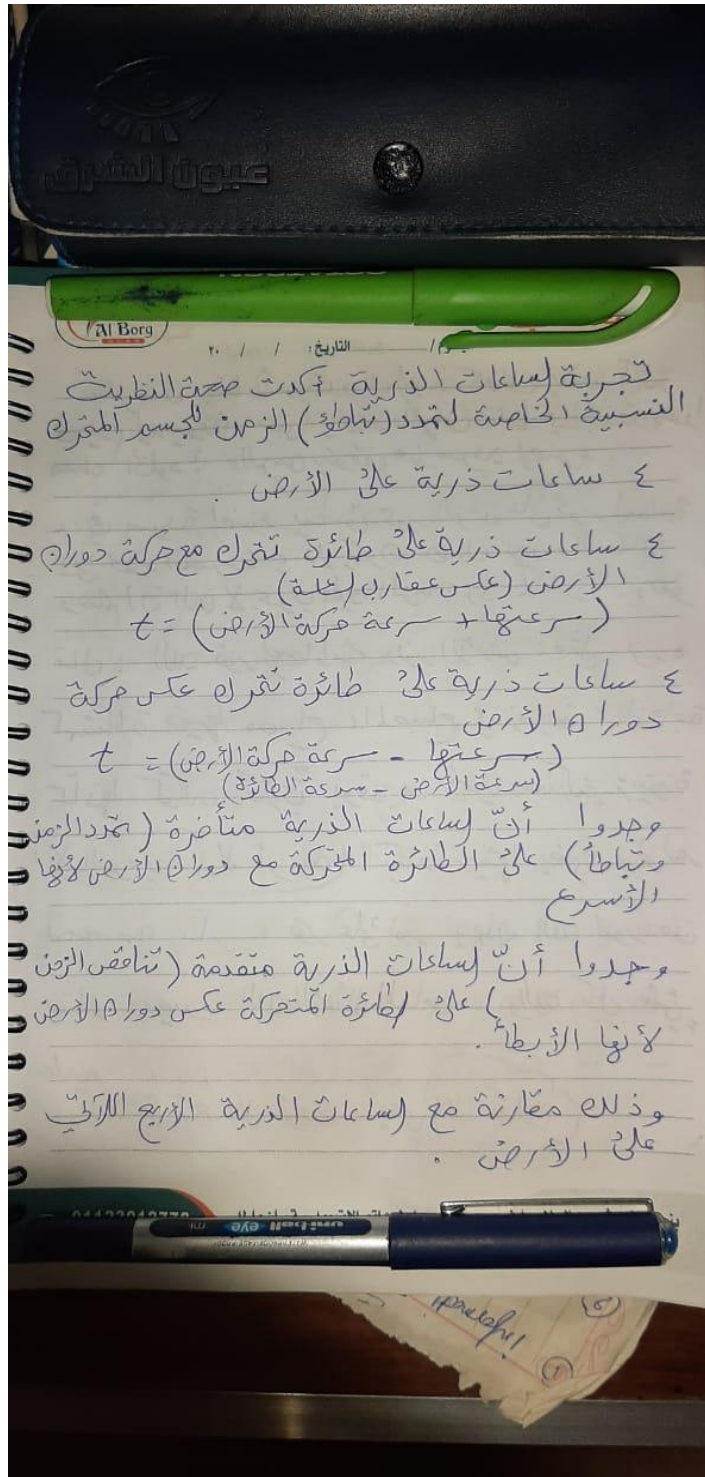 عيون الشرق
Al Borg
SCAN
التاريخ: / / ٢٠
تجربة الساعات الذرية أكدت صحة النظرية
النسبية الخاصة لتمدد (تباطؤ) الزمن للجسم المتحرك
٤ ساعات ذرية على الأرض .
٤ ساعات ذرية على طائرة تتحرك مع حركة دوران
الأرض (عكس عقارب الساعة)
(سرعتها + سرعة حركة الأرض) = t
٤ ساعات ذرية على طائرة تتحرك عكس حركة
دوران الأرض
(سرعتها - سرعة حركة الأرض) = t
(سرعة الأرض - سرعة الطائرة)
وجدوا أنّ الساعات الذرية متأخرة (تمدد الزمن
وتباطأ) على الطائرة المتحركة مع دوران الأرض لأنها
الأسرع
وجدوا أنّ الساعات الذرية متقدمة (تناقص الزمن
) على الطائرة المتحركة عكس دوران الأرض
لأنها الأبطأ .
وذلك مقارنة مع الساعات الذرية الأربع اللآتي
على الأرض .
uniball
eye
informed